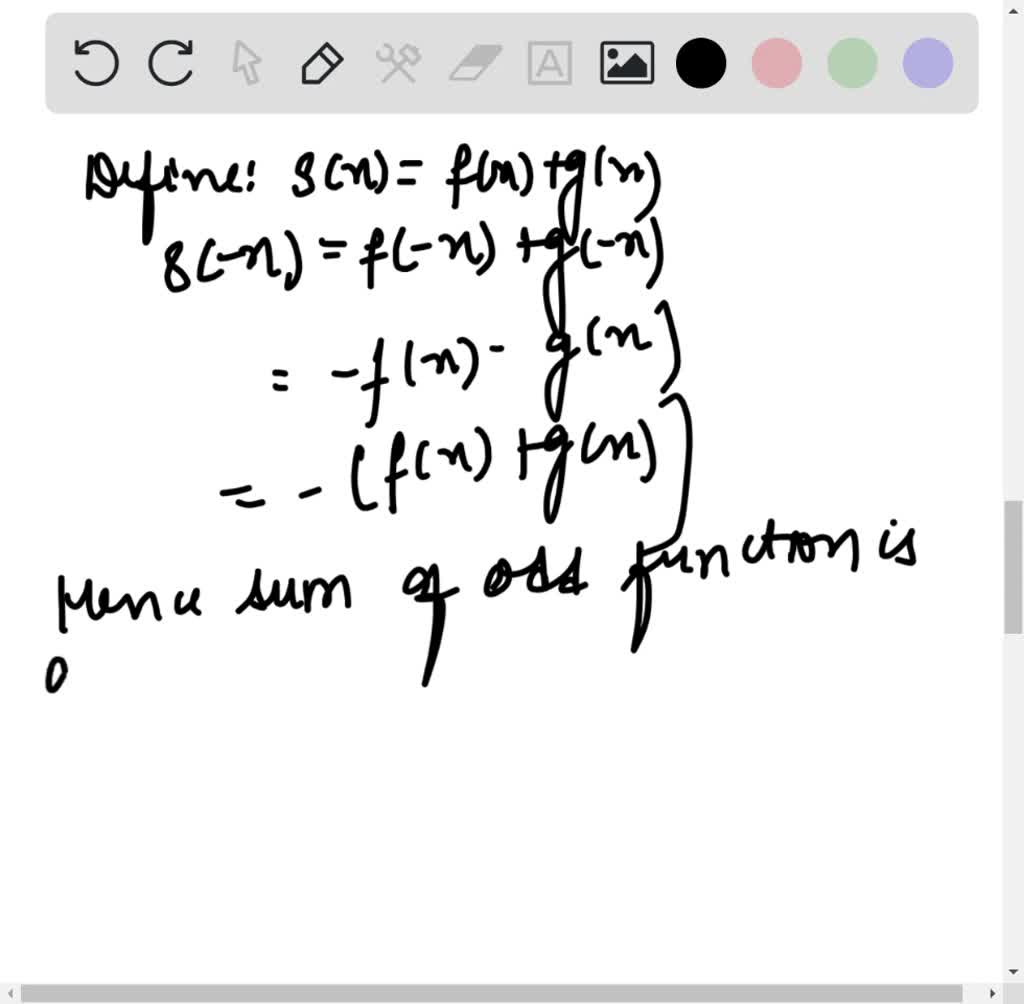 Define: s(x) = f(x) + g(x)
s(-x) = f(-x) + g(-x)
= -f(x) - g(x)
= - (f(x) + g(x))
Hence sum of odd function is
o